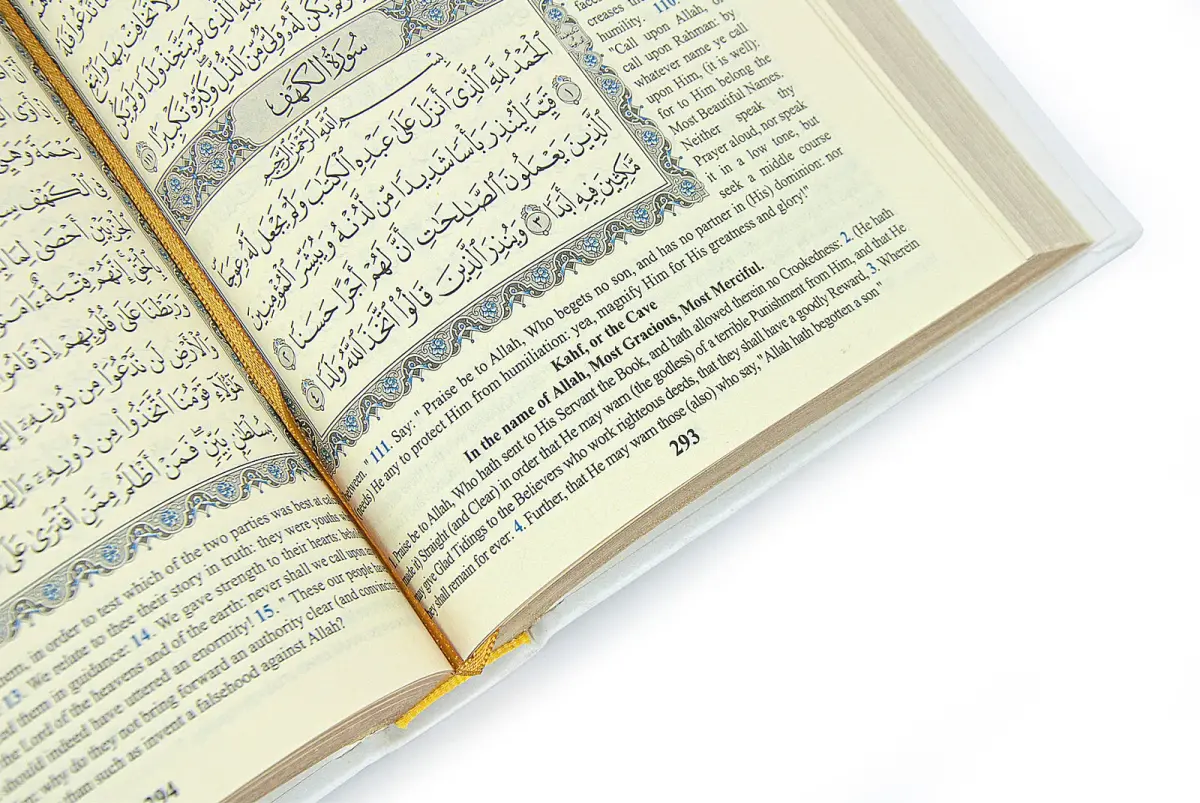 وَلَا تُخَافِتْ بِهَا وَٱبْتَغِ
ٱلَّذِى لَمْ يَتَّخِذْ وَلَدًا وَلَمْ يَكُن
وَلَمْ يَكُن لَّهُۥ وَلِىٌّ مِّنَ ٱلذُّلِّ وَكَبِّرْهُ تَكْبِيرًا ١١١
سُورَةُ الكَهْفِ
بِسْمِ ٱللَّهِ ٱلرَّحْمَٰنِ ٱلرَّحِيمِ
ٱلْحَمْدُ لِلَّهِ ٱلَّذِىٓ أَنزَلَ عَلَىٰ عَبْدِهِ ٱلْكِتَٰبَ وَلَمْ يَجْعَل لَّهُۥ عِوَجَا ١
قَيِّمًا لِّيُنذِرَ بَأْسًا شَدِيدًا مِّن لَّدُنْهُ وَيُبَشِّرَ ٱلْمُؤْمِنِينَ
ٱلَّذِينَ يَعْمَلُونَ ٱلصَّٰلِحَٰتِ أَنَّ لَهُمْ أَجْرًا حَسَنًا ٢
مَّٰكِثِينَ فِيهِ أَبَدًا ٣ وَيُنذِرَ ٱلَّذِينَ قَالُوا۟ ٱتَّخَذَ ٱللَّهُ وَلَدًا ٤
creases
humility. 110.
"Call upon Allah, or
call upon Rahman: by
whatever name ye call
upon Him, (it is well):
for to Him belong the
Most Beautiful Names.
Neither speak thy
Prayer aloud, nor speak
it in a low tone, but
seek a middle course
between." 111. Say: " Praise be to Allah, Who begets no son, and has no partner in (His) dominion: nor
needs) He any to protect Him from humiliation: yea, magnify Him for His greatness and glory!"
Kahf, or the Cave
In the name of Allah, Most Gracious, Most Merciful.
Praise be to Allah, Who hath sent to His Servant the Book, and hath allowed therein no Crookedness: 2. (He hath
made it) Straight (and Clear) in order that He may warn (the godless) of a terrible Punishment from Him, and that He
may give Glad Tidings to the Believers who work righteous deeds, that they shall have a goodly Reward, 3. Wherein
they shall remain for ever: 4. Further, that He may warn those (also) who say, "Allah hath begotten a son"
293
رَحْمَةً وَهَيِّئْ
فِى ٱلْكَهْفِ
ٱلْحِزْبَيْنِ أَحْصَىٰ لِمَا
إِنَّهُمْ فِتْيَةٌ ءَامَنُوا۟
وَرَبَطْنَا عَلَىٰ قُلُوبِهِمْ إِذْ قَامُوا۟
وَٱلْأَرْضِ لَن نَّدْعُوَا۟ مِن دُونِهِۦٓ إِلَٰهًا
هَٰٓؤُلَآءِ قَوْمُنَا ٱتَّخَذُوا۟ مِن دُونِهِۦٓ ءَالِهَةً
بِسُلْطَٰنٍۭ بَيِّنٍ فَمَنْ أَظْلَمُ مِمَّنِ ٱفْتَرَىٰ عَلَى
them, in order to test which of the two parties was best at
13. We relate to thee their story in truth: they were youths
them in guidance: 14. We gave strength to their hearts:
the Lord of the heavens and of the earth: never shall we call upon
should indeed have uttered an enormity! 15. " These our people have
why do they not bring forward an authority clear (and convincing
than such as invent a falsehood against Allah?
294